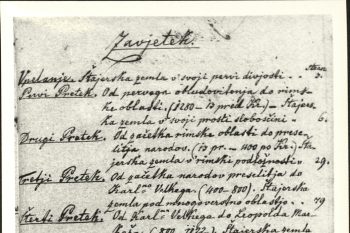 Zavjetek.
Stran
Vpelanje. Štajerska zemla v svoji pervi divjosti . . 3.
Pervi Pretek. Od pervega obludovitenja do rimske
oblasti. (1280 – 13 pred Kr.) – Štajerska
zemla v svoji prosti slobočini . . 6.
Drugi Pretek. Od začetka rimske oblasti do preselitja
narodov. (13 pr. – 400 po Kr.) Štajerska
zemla v rimski podložnosti . 29.
Tretji Pretek. Od začetka narodov preselitja do
Karl Velkega. (400–800). Štajerska
zemla pod mnogoverstno oblastjo . . 49
Četerti Pretek. Od Karl Velkega do Leopolda
(800 1122). Štajerska zemla